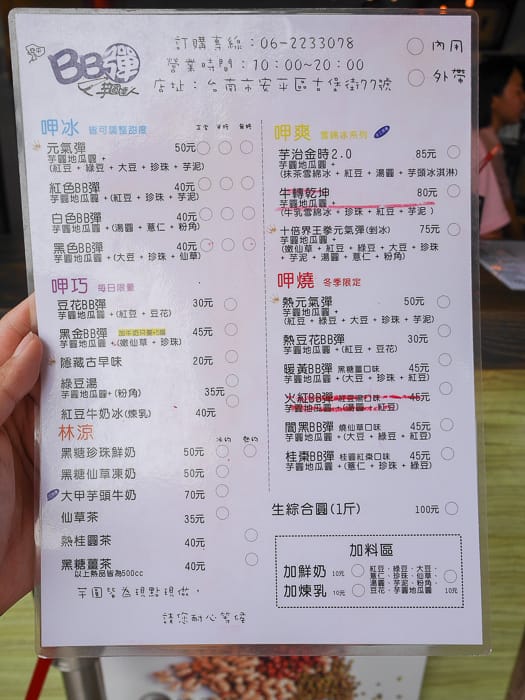 BB彈
芋圓達人
訂購專線：06-2233078
營業時間：10:00~20:00
店址：台南市安平區古堡街77號
內用
外帶
呷冰 皆可調整甜度
元氣彈 50元
芋圓地瓜圓+
(紅豆+綠豆+大豆+珍珠+芋泥)
紅色BB彈 40元
芋圓地瓜圓+(紅豆+珍珠+芋泥)
白色BB彈 40元
芋圓地瓜圓+(湯圓+薏仁+粉角)
黑色BB彈 40元
芋圓地瓜圓+(大豆+珍珠+仙草)
呷巧 每日限量
豆花BB彈 30元
芋圓地瓜圓+(紅豆+豆花)
黑金BB彈 45元
芋圓地瓜圓+(嫩仙草+珍珠)
隱藏古早味 20元
綠豆湯 35元
芋圓地瓜圓+(粉角)
紅豆牛奶冰(煉乳) 40元
林涼
黑糖珍珠鮮奶 50元
黑糖仙草凍奶 50元
大甲芋頭牛奶 70元
仙草茶 35元
熱桂圓茶 40元
黑糖薑茶 40元
以上熱品皆為500cc
芋圓皆為現點現做，
請您耐心等候
呷爽 雪綿冰系列
芋治金時2.0 85元
芋圓地瓜圓+
(抹茶雪綿冰+紅豆+湯圓+芋頭冰淇淋)
牛轉乾坤 80元
芋圓地瓜圓+
(牛乳雪綿冰+珍珠+紅豆+芋泥)
十倍界王拳元氣彈(剉冰) 75元
芋圓地瓜圓+
(嫩仙草+紅豆+綠豆+大豆+珍珠
+芋泥+湯圓+薏仁+粉角)
呷燒 冬季限定
熱元氣彈 50元
芋圓地瓜圓+
(紅豆+綠豆+大豆+珍珠+芋泥)
熱豆花BB彈 30元
芋圓地瓜圓+(紅豆+豆花)
暖黃BB彈 黑糖薑口味 45元
芋圓地瓜圓+(大豆+珍珠+紅豆)
火紅BB彈 紅豆湯口味 45元
芋圓地瓜圓+(湯圓+紅豆)
闇黑BB彈 燒仙草口味 45元
芋圓地瓜圓+(大豆+綠豆+紅豆)
桂棗BB彈 桂圓紅棗口味 45元
芋圓地瓜圓+(薏仁+珍珠+綠豆)
生綜合圓(1斤) 100元
加料區
加鮮奶 10元
加煉乳 10元
紅豆、綠豆、大豆、
薏仁、珍珠、仙草、
湯圓、芋泥、粉角、
豆花、芋圓地瓜圓 10元